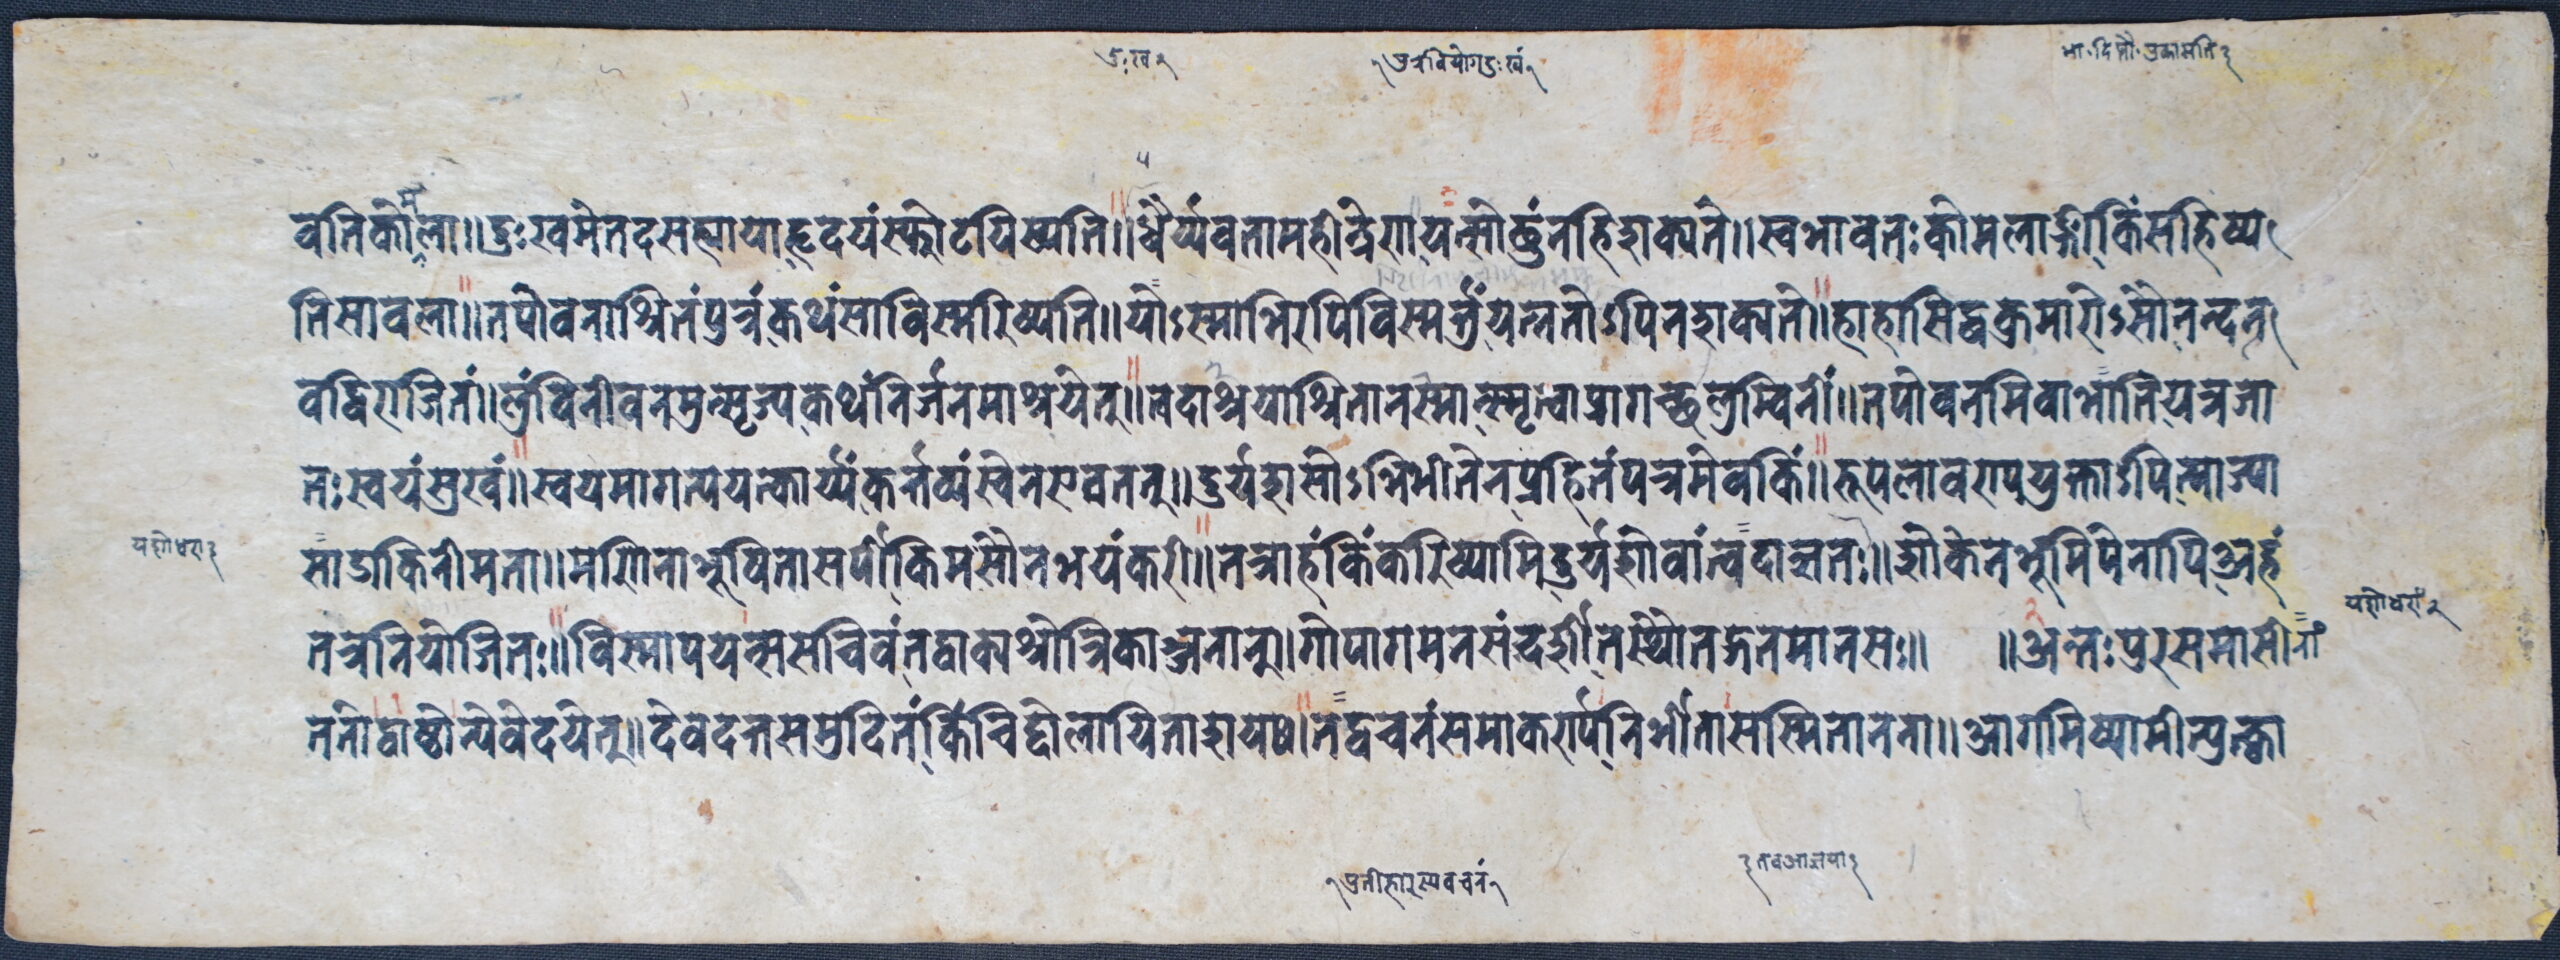 दुःख २
पुत्रवियोगदुःखं
वतिकोमला॥दुःखमेतदसह्यायाहृदयंस्फोटयिष्यति॥धैर्य्यवतामहीन्द्रेणयत्सोढुंनहिशक्यते॥स्वभावतःकोमलाङ्गीकिंसहिष्य
तिसावला॥तपोवनाश्रितंपुत्रंकथंसाविस्मरिष्यति॥योऽस्माभिरपिविस्मर्त्तुंयत्नतोऽपिनशक्यते॥हाहासिद्धकुमारोऽसौनन्दन
वद्विराजितं॥लुंविनीवनमुत्सृज्यकथंनिर्जनमाश्रयेत्॥त्वदाश्रयाश्रितानस्मान्स्मृत्वाप्रागच्छलुम्विनीं॥तपोवनमिवाभातियत्रजा
तःस्वयंसुखं॥स्वयमागत्ययत्कार्य्यंकर्त्तव्यंस्वेनएवतत्॥दुर्यशसोऽभिभीतेनप्रहितंपत्रमेवकिं॥रूपलावण्ययुक्ताऽपित्याज्या
साडाकिनीमता॥मणिनाभूषितासर्पीकिमसौनभयंकरी॥तत्राहंकिंकरिष्यामिदुर्यशोवांत्वदाज्ञतः॥शोकेनभूमिपेनापिअहं
यशोधरा३
यशोधरां२
तत्रनियोजितः॥विस्मापयन्ससचिवंतद्वाक्यश्रोत्रिकाञ्जनान्।गोपागमनसंदर्शीतस्थौतद्गतमानसः॥ ॥अन्तःपुरसमासीनां
ततोद्वाष्ठोन्यवेदयेत्॥देवदत्तसमुदितंकिंचिद्दोलायिताशया।तद्वचनंसमाकर्ण्यनिर्भीतासस्मितानना॥आगमिष्यामीत्युत्क्वा
प्रतीहारस्यवचनं
तवआज्ञया३